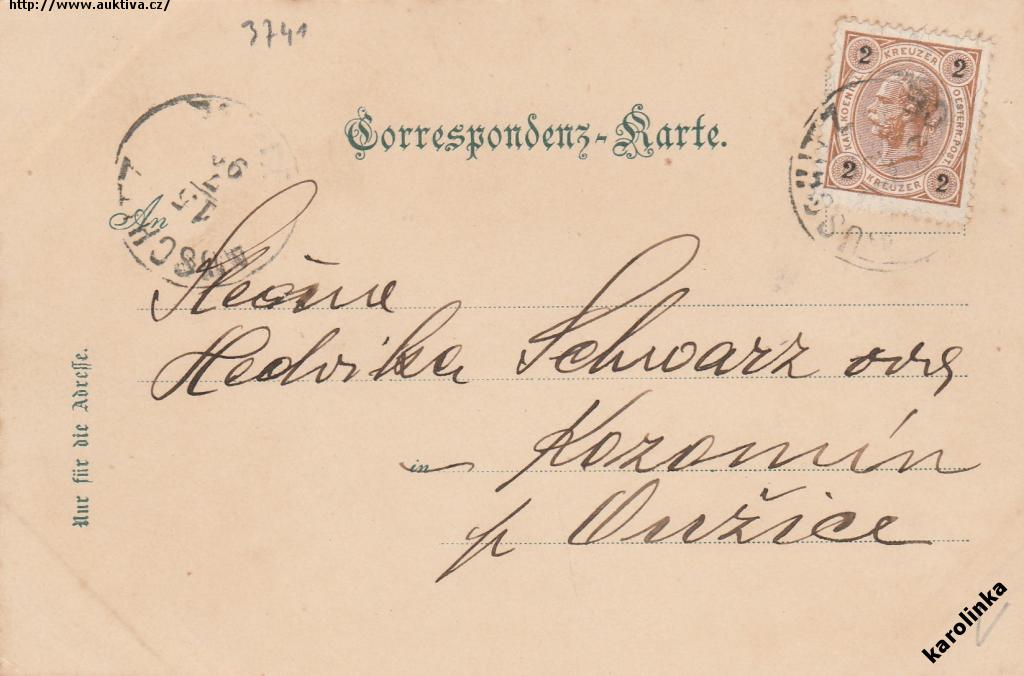 http://www.auktiva.cz/
3741
Correspondenz-Karte.
2 KREUZER 2
KAIS. KOENIGL. OESTERR. POST.
2 KREUZER 2
An
Slečna
Hedvika Schwarz ova
in Kozomín
p Oužice
Nur für die Adresse.
karolinka